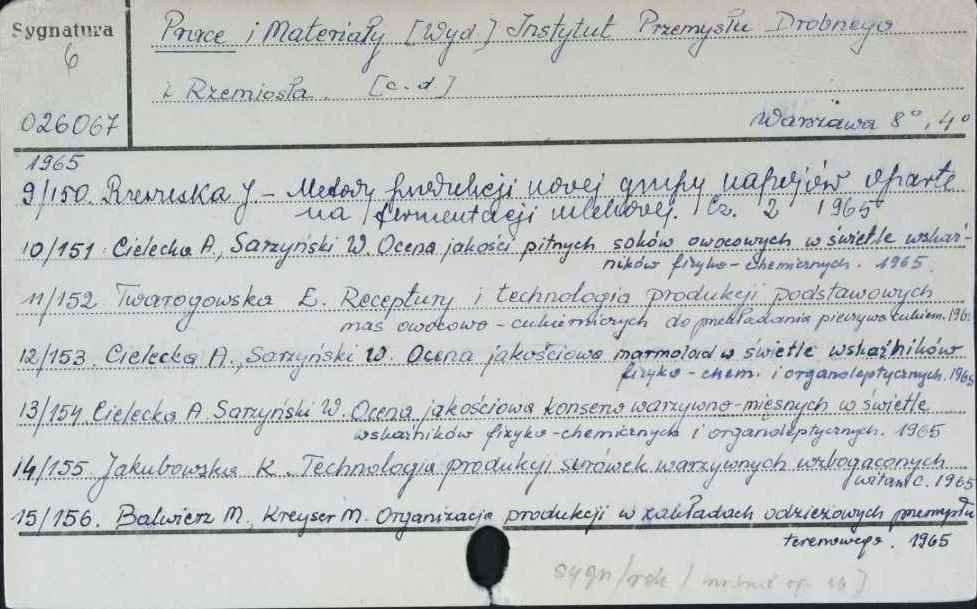 Sygnatura
6
026067
Prace i Materiały [Wyd] Instytut Przemysłu Drobnego
i Rzemiosła. [c.d]
Warszawa 8°, 4°
1965
9/150. J – Metody produkcji nowej grupy napojów oparte
na fermentacji mlekowej. Cz. 2 1965
10/151. Cielecka A., Sarzyński W. Ocena jakości pitnych soków owocowych w świetle wskaź-
ników fizyko-chemicznych. 1965.
11/152 Twarogowska E. Receptury i technologia produkcji podstawowych
mas owocowo-cukierniczych do przekładania pieczywa cukiern.
12/153. Cielecka A., Sarzyński W. Ocena jakościowa marmolad w świetle wskaźników
fizyko-chem. i organoleptycznych. 1965
13/154 Cielecka A. Sarzyński W. Ocena jakościowa konserw warzywno-mięsnych w świetle
wskaźników fizyko-chemicznych i organoleptycznych. 1965
14/155 Jakubowska K. Technologia produkcji surówek warzywnych wzbogaconych
witam C. 1965
15/156. Balwierz M., Kreyser M. Organizacja produkcji w zakładach odzieżowych przemysłu
terenowego. 1965
sygn/rok /